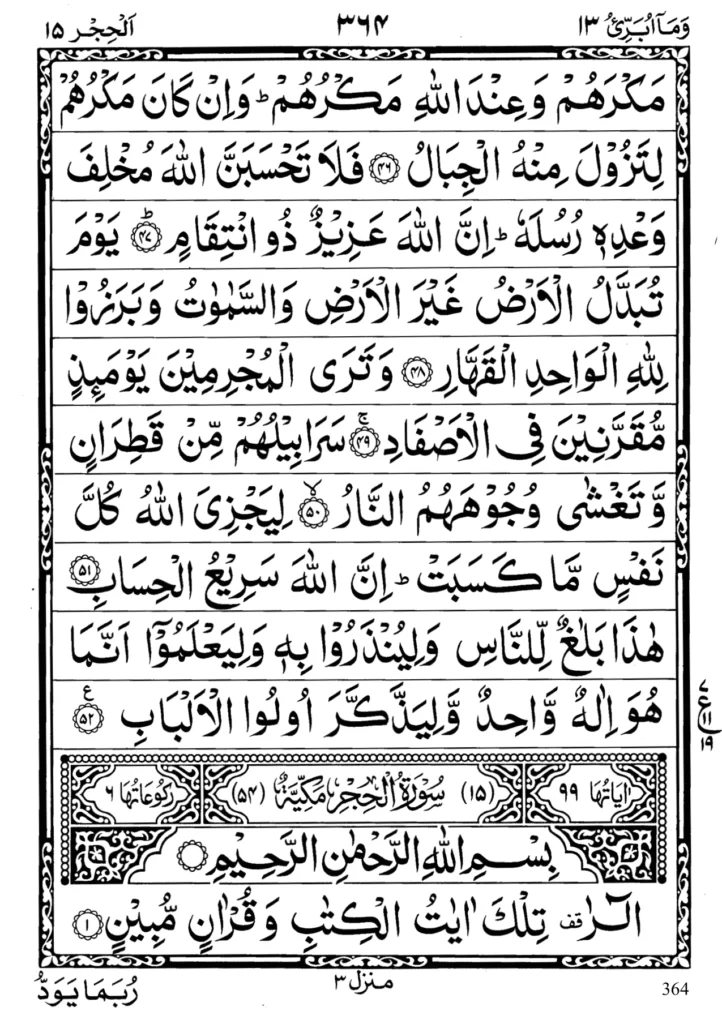 وَمَاۤ اُبَرِّئُ ١٣ ٣٦۴ اَلْحِجْر ١۵
مَكْرَهُمْ وَعِنْدَ اللّٰهِ مَكْرُهُمْ ؕ وَاِنْ كَانَ مَكْرُهُمْ
لِتَزُوْلَ مِنْهُ الْجِبَالُ ۴۶ فَلَا تَحْسَبَنَّ اللّٰهَ مُخْلِفَ
وَعْدِهٖ رُسُلَهٗ ؕ اِنَّ اللّٰهَ عَزِيْزٌ ذُو انْتِقَامٍ ؕ ۴۷ يَوْمَ
تُبَدَّلُ الْاَرْضُ غَيْرَ الْاَرْضِ وَالسَّمٰوٰتُ وَبَرَزُوْا
لِلّٰهِ الْوَاحِدِ الْقَهَّارِ ۴۸ وَتَرَى الْمُجْرِمِيْنَ يَوْمَئِذٍ
مُّقَرَّنِيْنَ فِى الْاَصْفَادِ ۚ ۴۹ سَرَابِيْلُهُمْ مِّنْ قَطِرَانٍ
وَّتَغْشٰى وُجُوْهَهُمُ النَّارُ ۙ ۵۰ لِيَجْزِىَ اللّٰهُ كُلَّ
نَفْسٍ مَّا كَسَبَتْ ؕ اِنَّ اللّٰهَ سَرِيْعُ الْحِسَابِ ۵۱
هٰذَا بَلٰغٌ لِّلنَّاسِ وَلِيُنْذَرُوْا بِهٖ وَلِيَعْلَمُوْۤا اَنَّمَا
هُوَ اِلٰهٌ وَّاحِدٌ وَّلِيَذَّكَّرَ اُولُوا الْاَلْبَابِ ۵۲ ع
٧
ع
١١
١٩
اٰيَاتُهَا ٩٩ (١۵) سُوْرَةُ الْحِجْرِ مَكِّيَّةٌ (۵۴) رُكُوْعَاتُهَا ٦
بِسْمِ اللّٰهِ الرَّحْمٰنِ الرَّحِيْمِ
الٓرٰ قف تِلْكَ اٰيٰتُ الْكِتٰبِ وَقُرْاٰنٍ مُّبِيْنٍ ١
364 منزل ٣ رُبَمَا يَوَدُّ